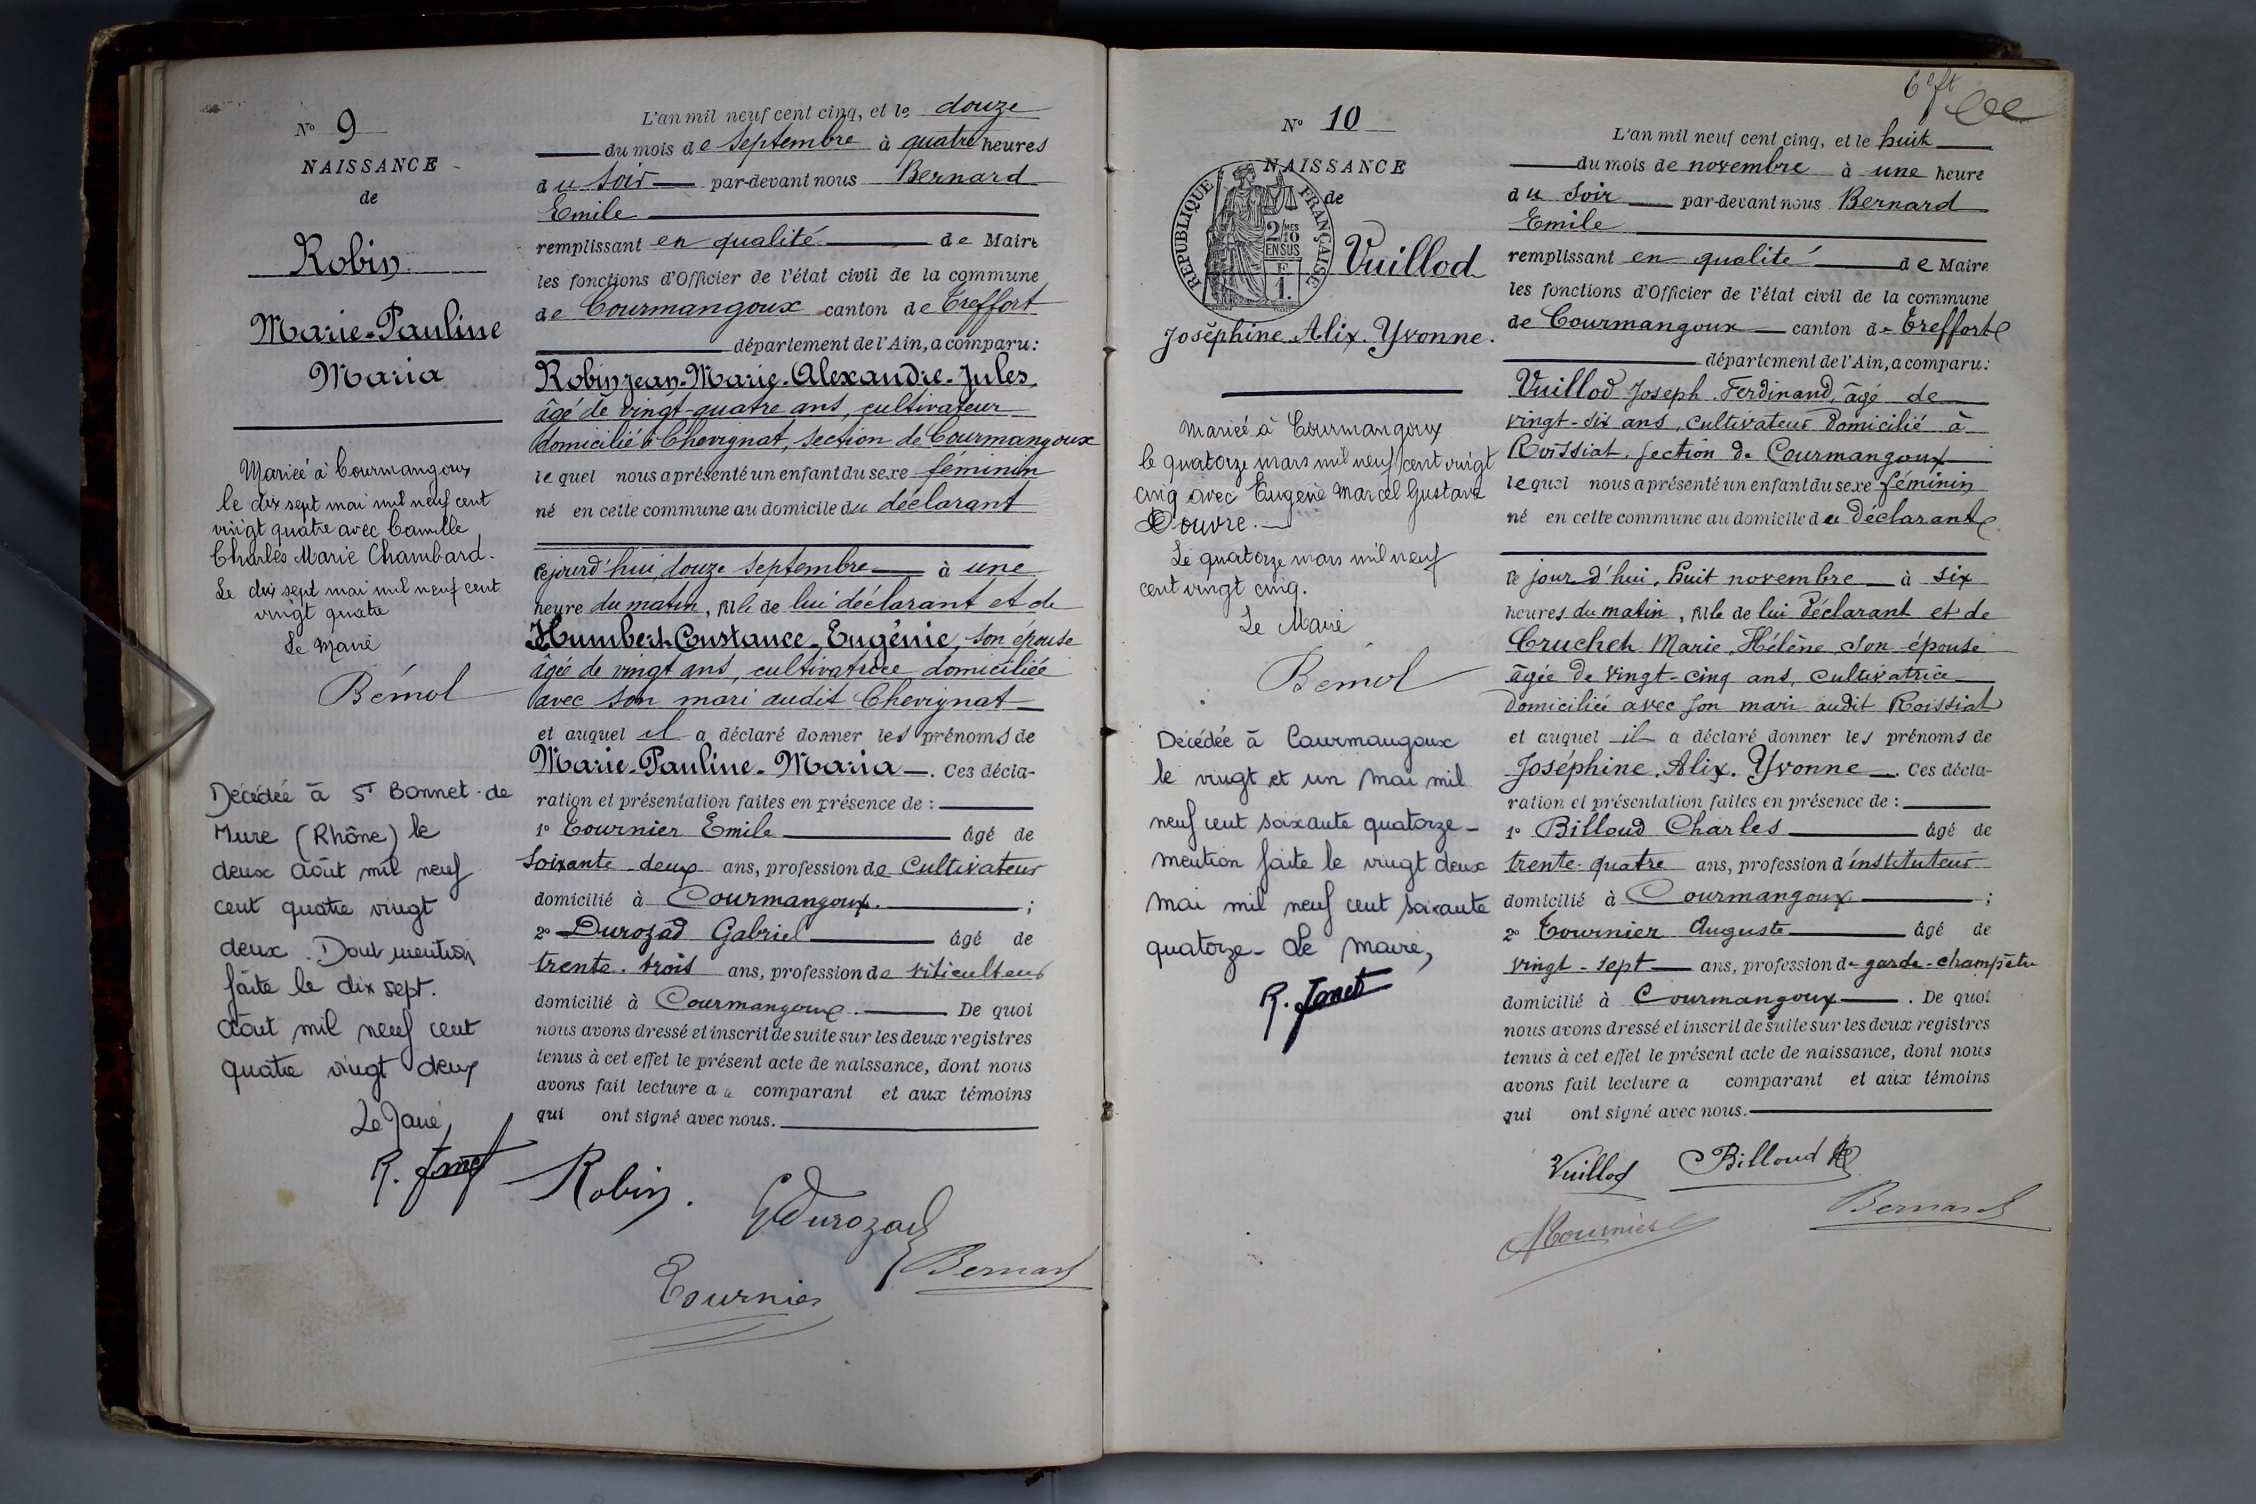 N° 9
NAISSANCE
de
Robin
Marie-Pauline
Maria
Mariée à Courmangoux
le dix sept mai mil neuf cent
vingt quatre avec Camille
Charles Marie Chambard.
Le dix sept mai mil neuf cent
vingt quatre
Le Maire
Bémol
Décédée à St Bonnet-de
Mure (Rhône) le
deux août mil neuf
cent quatre vingt
deux. Dont mention
faite le dix sept.
août mil neuf cent
quatre vingt deux
Le Maire,
R. Janet
L'an mil neuf cent cinq, et le douze
du mois de septembre à quatre heures
du soir par-devant nous Bernard
Emile
remplissant en qualité de Maire
les fonctions d'Officier de l'état civil de la commune
de Courmangoux canton de Treffort
département de l'Ain, a comparu:
Robin Jean-Marie-Alexandre-Jules,
âgé de vingt-quatre ans, cultivateur
domicilié à Chevignat, section de Courmangoux
lequel nous a présenté un enfant du sexe féminin
né en cette commune au domicile du déclarant
cejourd'hui, douze septembre à une
heure du matin, fille de lui déclarant et de
Humbert Constance-Eugénie, son épouse
âgée de vingt ans, cultivatrice domiciliée
avec son mari audit Chevignat
et auquel il a déclaré donner les prénoms de
Marie-Pauline-Maria. Ces décla-
ration et présentation faites en présence de :
1° Tournier Emile âgé de
soixante-deux ans, profession de cultivateur
domicilié à Courmangoux. ;
2° Durozad Gabriel âgé de
trente-trois ans, profession de viticulteur
domicilié à Courmangoux. De quoi
nous avons dressé et inscrit de suite sur les deux registres
tenus à cet effet le présent acte de naissance, dont nous
avons fait lecture au comparant et aux témoins
qui ont signé avec nous.
Robin.
G Durozad
Tournier
Bernard
N° 10
NAISSANCE
de
REPUBLIQUE FRANÇAISE
2/10 MES
EN SUS
F
1.
Vuillod
Joséphine. Alix. Yvonne.
Mariée à Courmangoux
le quatorze mars mil neuf cent vingt
cinq avec Eugène Marcel Gustave
Couvre.
Le quatorze mars mil neuf
cent vingt cinq.
Le Maire
Bémol
Décédée à Courmangoux
le vingt et un mai mil
neuf cent soixante quatorze-
mention faite le vingt deux
mai mil neuf cent soixante
quatorze- Le Maire,
R. Janet
L'an mil neuf cent cinq, et le huit
du mois de novembre à une heure
du soir par-devant nous Bernard
Emile
remplissant en qualité de Maire
les fonctions d'Officier de l'état civil de la commune
de Courmangoux canton de Treffort
département de l'Ain, a comparu:
Vuillod Joseph. Ferdinand, âgé de
vingt-six ans, cultivateur domicilié à
Roissiat, section de Courmangoux
lequel nous a présenté un enfant du sexe féminin
né en cette commune au domicile du déclarant
ce jour d'hui, huit novembre à six
heures du matin, fille de lui déclarant et de
Cruchet Marie, Hélène son épouse
âgée de vingt-cinq ans, cultivatrice
domiciliée avec son mari audit Roissiat
et auquel il a déclaré donner les prénoms de
Joséphine. Alix. Yvonne. Ces décla-
ration et présentation faites en présence de :
1° Billoud Charles âgé de
trente-quatre ans, profession d'instituteur
domicilié à Courmangoux ;
2° Tournier Auguste âgé de
vingt-sept ans, profession de garde-champêtre
domicilié à Courmangoux. De quoi
nous avons dressé et inscrit de suite sur les deux registres
tenus à cet effet le présent acte de naissance, dont nous
avons fait lecture a comparant et aux témoins
qui ont signé avec nous.
Vuillod
Billoud
Bernard
ATournier